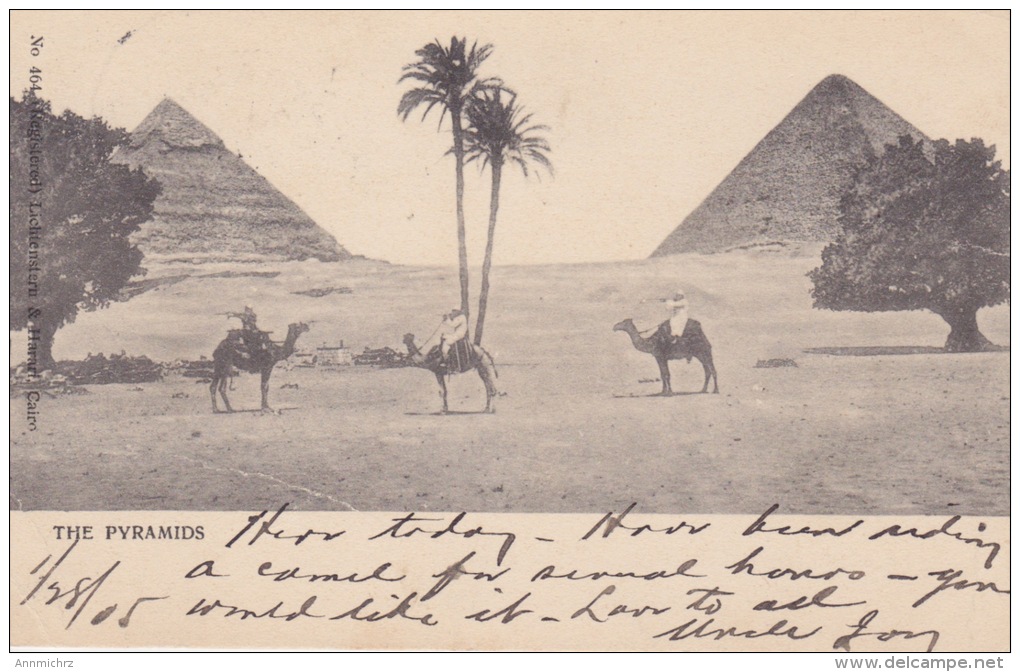 No 464 (Registered) Lichtenstern & Harari, Cairo
THE PYRAMIDS
Here today - Have been riding
a camel for several hours - you
would like it - Love to all
Uncle
1/28/05
Annmichrz
www.delcampe.net